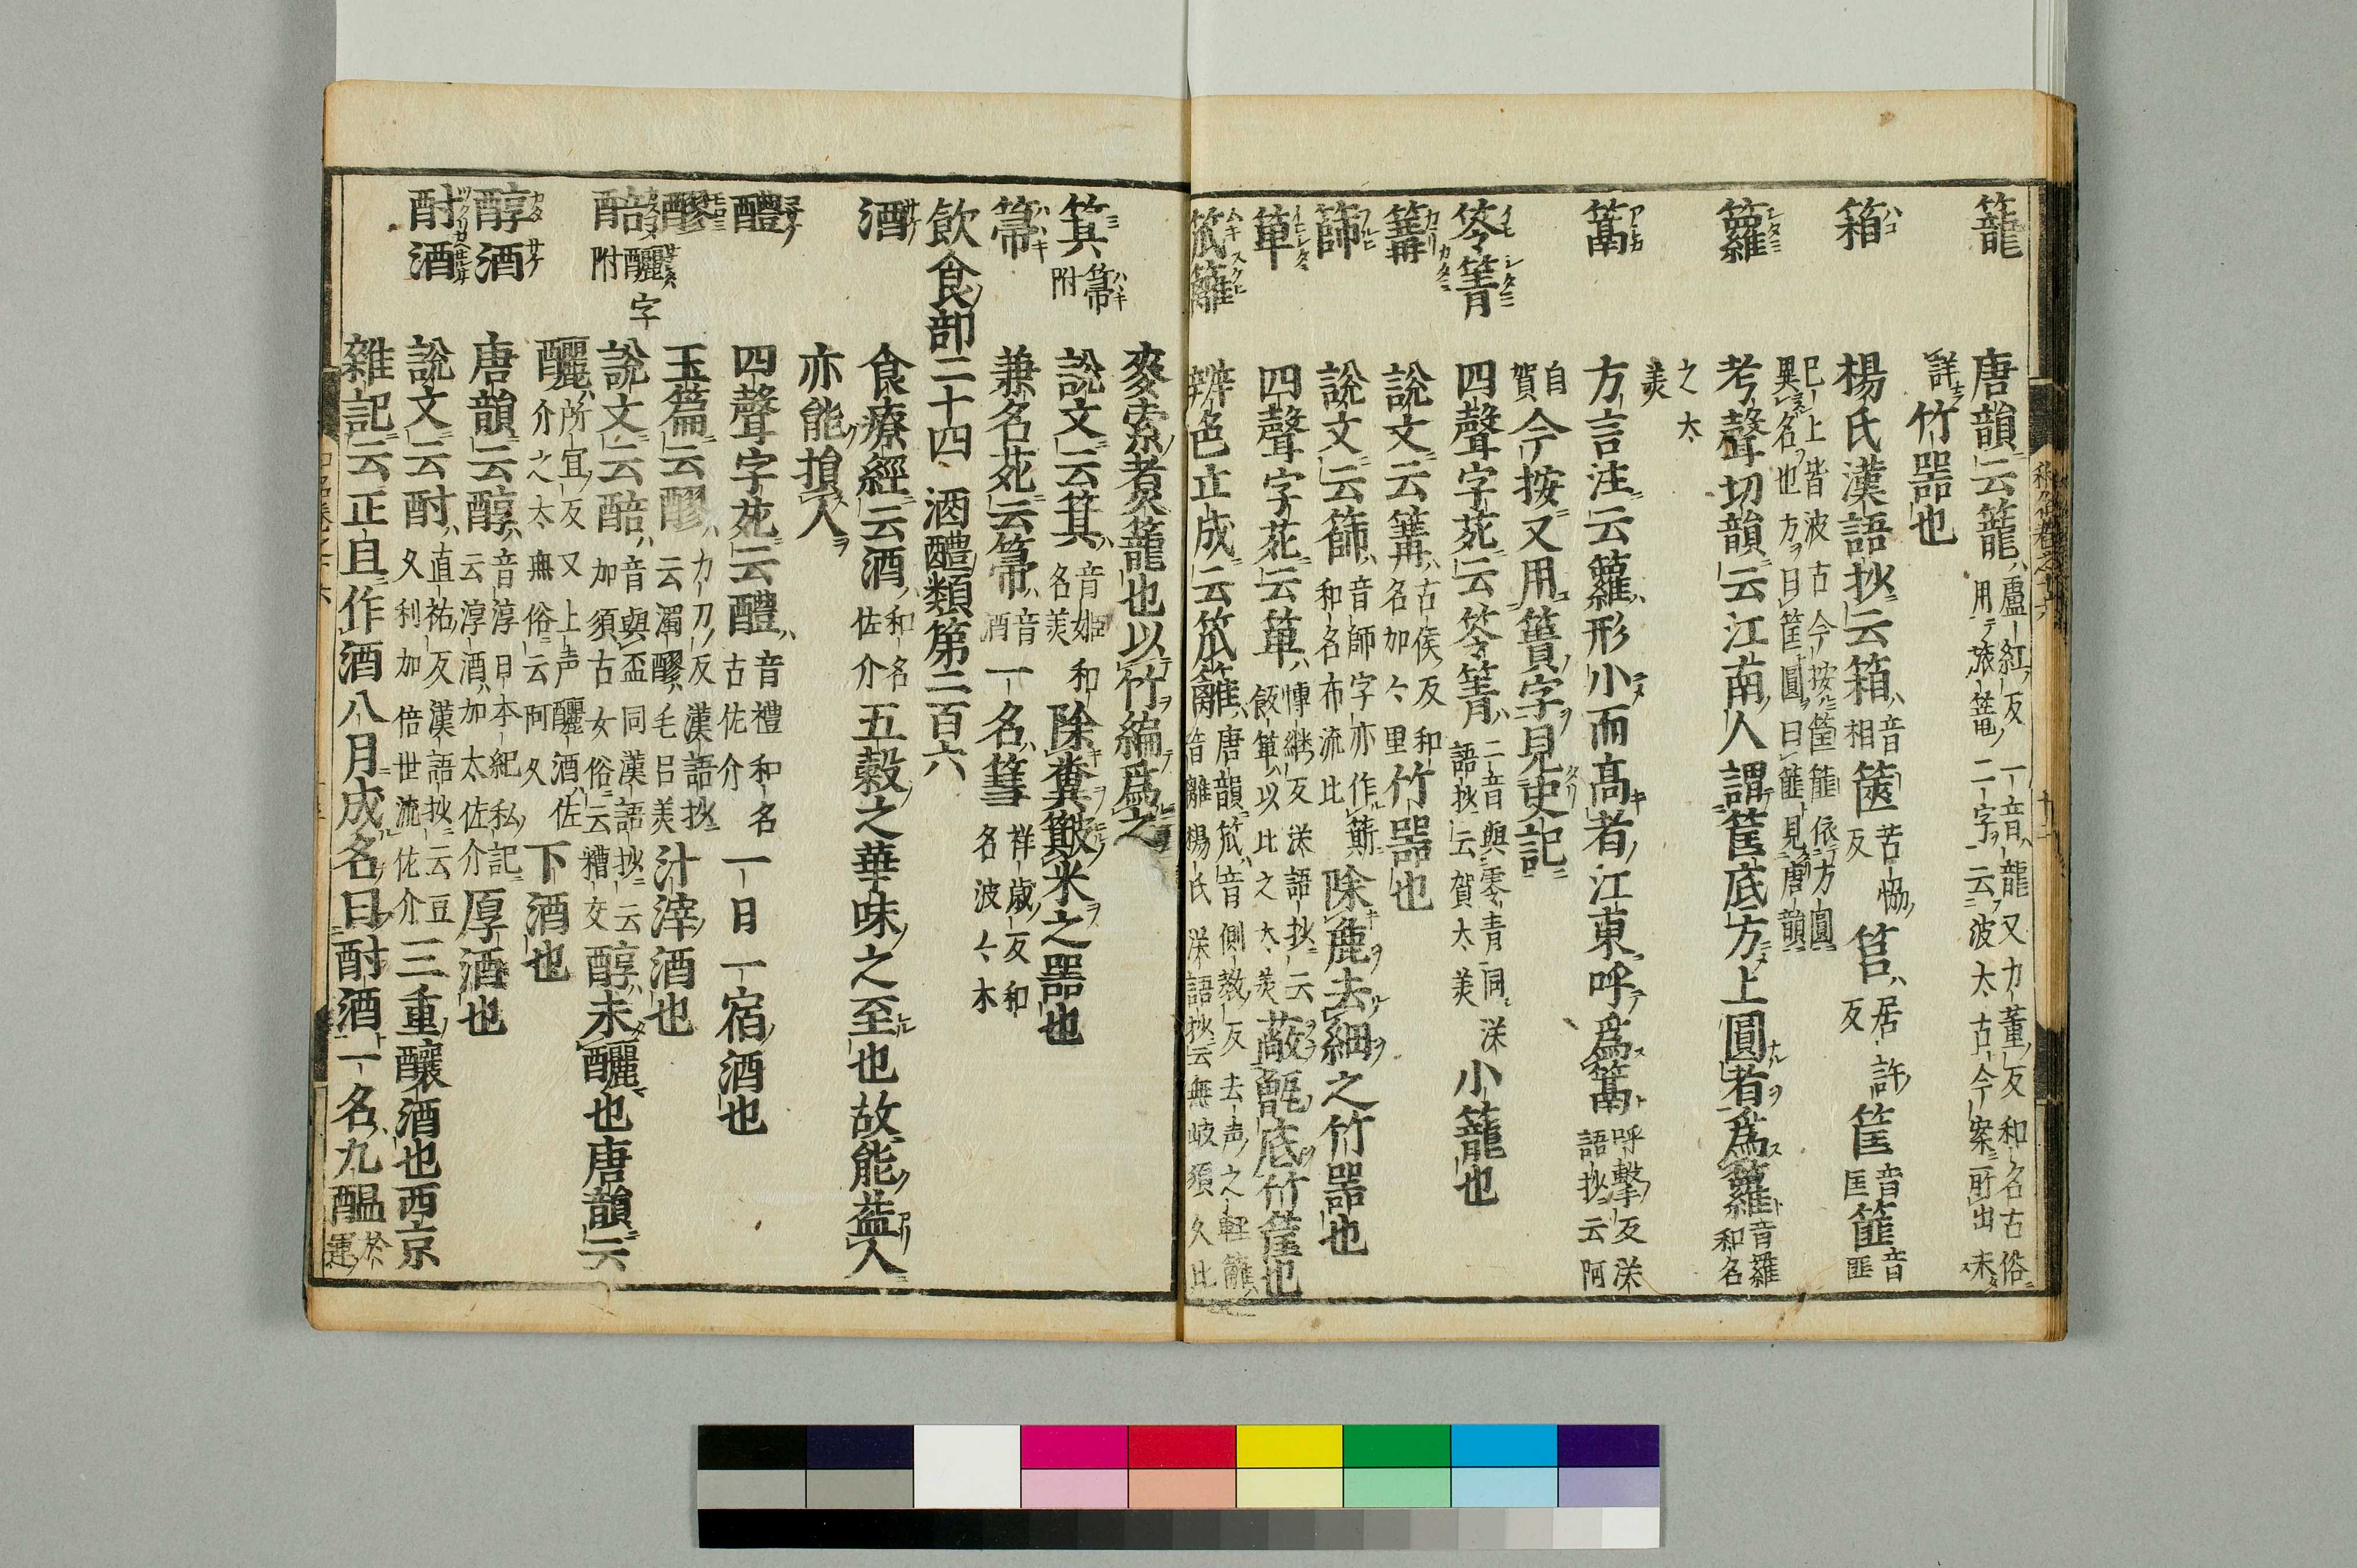 籠 唐韻云籠 盧紅反 一音龍 又力董反 和名古 俗用旅篭二字云波太古今案所出未
詳 竹器也
箱 楊氏漢語抄云箱 音相 篋 苦恊反 筥 居許反 筐 音匡 篚 音匪
巳上皆波古今按筐篚依方圓異名也方曰筐圓曰篚見唐韻
籮 考聲切韻云江南人謂筐底方上圓者爲籮 音羅 和名
之太美
篙 方言注云籮形小而高者江東呼爲篙 呼擊反 漾語抄云阿
自賀 今按又用簣字見史記
笭箐 四聲字苑云笭箐 二音與零青同 漾語抄云賀太美 小籠也
篝 說文云篝 古侯反 和名加々里 竹器也
篩 說文云篩 音師字亦作簛 和名布流比 除麁去細之竹器也
箄 四聲字苑云箄 博継反 漾語抄云飯箄以比之太美 蔽甑底竹筐也
笊籬 辨色立成云笊籬 唐韻笊音側教反去声之軽籬音離楊氏漾語抄云無岐須久比
麥索煮籠也以竹編爲之
箕 箒附 說文云箕 音姫 和名美 除糞簸米之器也
箒 兼名苑云箒 音酒 一名篲 祥歳反 和名波々木
飲食部二十四 酒醴類第二百六
酒 食療經云酒 和名佐介 五穀之華味之至也故能益人
亦能損人
醴 四聲字苑云醴 音禮 和名古佐介 一日一宿酒也
醪 玉篇云醪 力刀反 漢語抄云濁醪毛呂美 汁滓酒也
醅 釃字附 說文云醅 音與盃同 漢語抄云加須古女俗云糟交 醇未釃也唐韻云
釃 所宜反又上声釃酒佐介之太無俗云阿久 下酒也
醇酒 唐韻云醇 音淳日本紀私記云淳酒加太佐介 厚酒也
酎酒 說文云酎 直祐反漢語抄云豆久利加倍世流佐介 三重釀酒也西京
雜記云正旦作酒八月成名曰酎酒一名九醞 於運